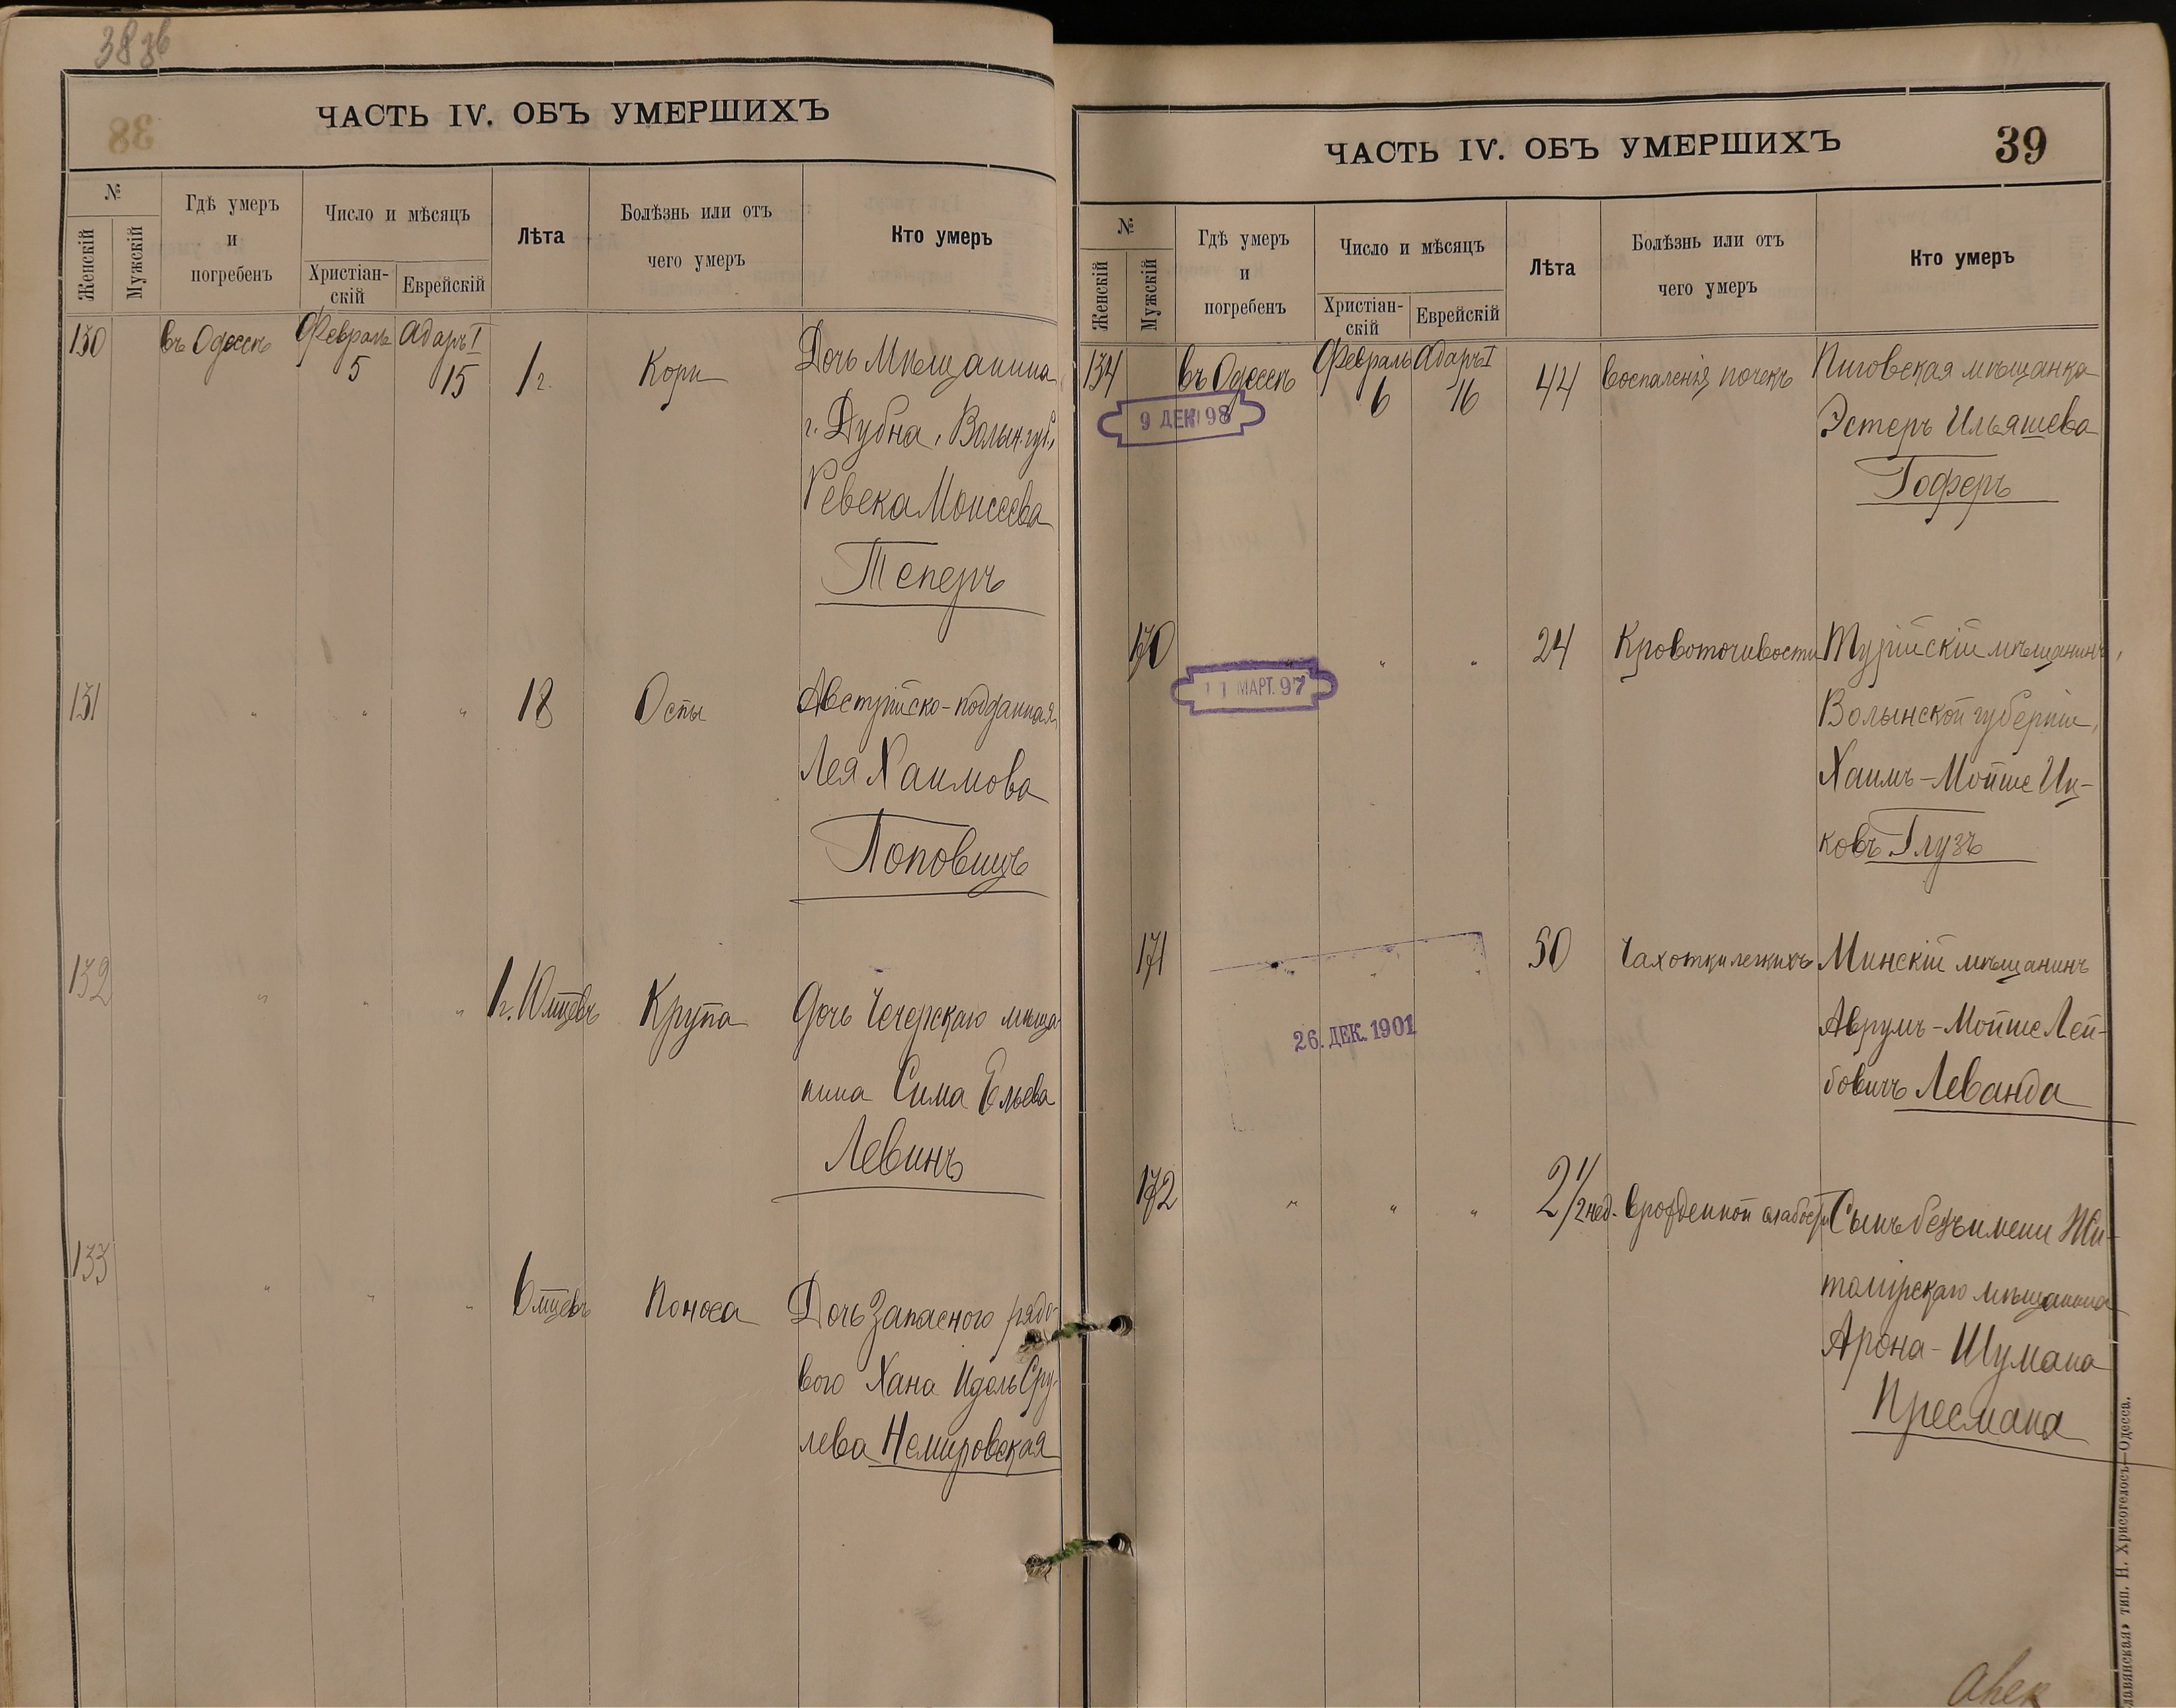 38 зв
ЧАСТЬ IV. ОБЪ УМЕРШИХЪ
№
Женскій
Мужскій
Гдѣ умеръ
и
погребенъ
Число и мѣсяцъ
Христіан-
скій
Еврейскій
Лѣта
Болѣзнь или отъ
чего умеръ
Кто умеръ
130 въ Одессѣ Февраль 5 Адаръ I 15 1 г. Кори Дочь Мѣщанина
г. Дубна, Волын. губ.,
Ревека Моисеева
Теперъ
131 " " " 18 Оспы Австрійско-подданная
Лея Хаимова
Поповицъ
132 " " " 1 г. 10 мцевъ Крупа Дочь Чечерскаго мѣща
нина Сима Ельева
Левинъ
133 " " " 6 мцевъ Поноса Дочь Запасного рядо-
вого Хана Идель Сру-
лева Немировская
ЧАСТЬ IV. ОБЪ УМЕРШИХЪ
39
№
Женскій
Мужскій
Гдѣ умеръ
и
погребенъ
Число и мѣсяцъ
Христіан-
скій
Еврейскій
Лѣта
Болѣзнь или отъ
чего умеръ
Кто умеръ
134 въ Одессѣ Февраль 6 Адаръ I 16 44 воспаленія почекъ Пиговская мѣщанка
9 ДЕК 98
Эстеръ Ильяшева
Гоферъ
170 " " " 24 Кровоточивости Турійскій мѣщанинъ,
11 МАРТ. 97
Волынской губерніи,
Хаимъ-Мойше Иц-
ковъ Глузъ
171 " " " 50 Чахотки легкихъ Минскій мѣщанинъ
26. ДЕК. 1901
Аврумъ-Мойше Лей-
бовичъ Леванда
172 " " " 2 1/2 нед. врожденной слабости Сынъ безъ имени Жи-
томірскаго мѣщанина
Арона-Шумана
Пресмана
тип. Н. Хрисогелосъ—Одесса.